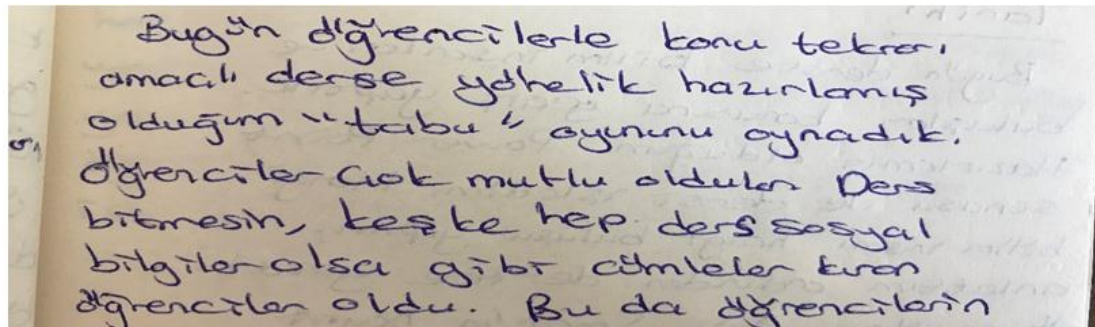 Bugün öğrencilerle konu tekrarı
amaçlı derse yönelik hazırlamış
olduğum "tabu" oyununu oynadık.
Öğrenciler çok mutlu oldular Ders
bitmesin, keşke hep ders sosyal
bilgiler olsa gibi cümleler kuran
öğrenciler oldu. Bu da öğrencilerin